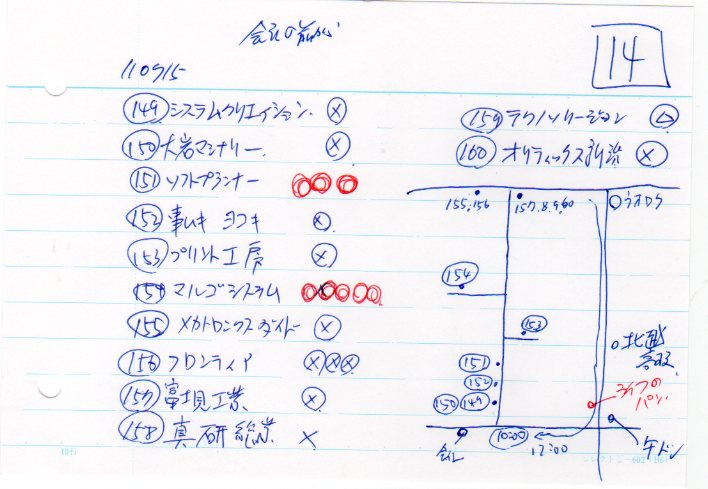 会社の前から
14
110915
149 システムクリエイション ×
150 大岩マシナリー ×
151 ソフトプランナー
152 事ムキ ヨコキ ×
153 プリント工房 ×
154 マルゴシステム
155 メカトロニクスダイドー ×
156 フロンティア ×××
157 富現工業 ×
158 真研総業 ×
159 テクノソリューション △
160 オリティックス新潟 ×
155.156
157.8.9.60
ウオロク
154
153
151
152
150 149
北越
高校
パン
牛ドン
会社
10:00
12:00